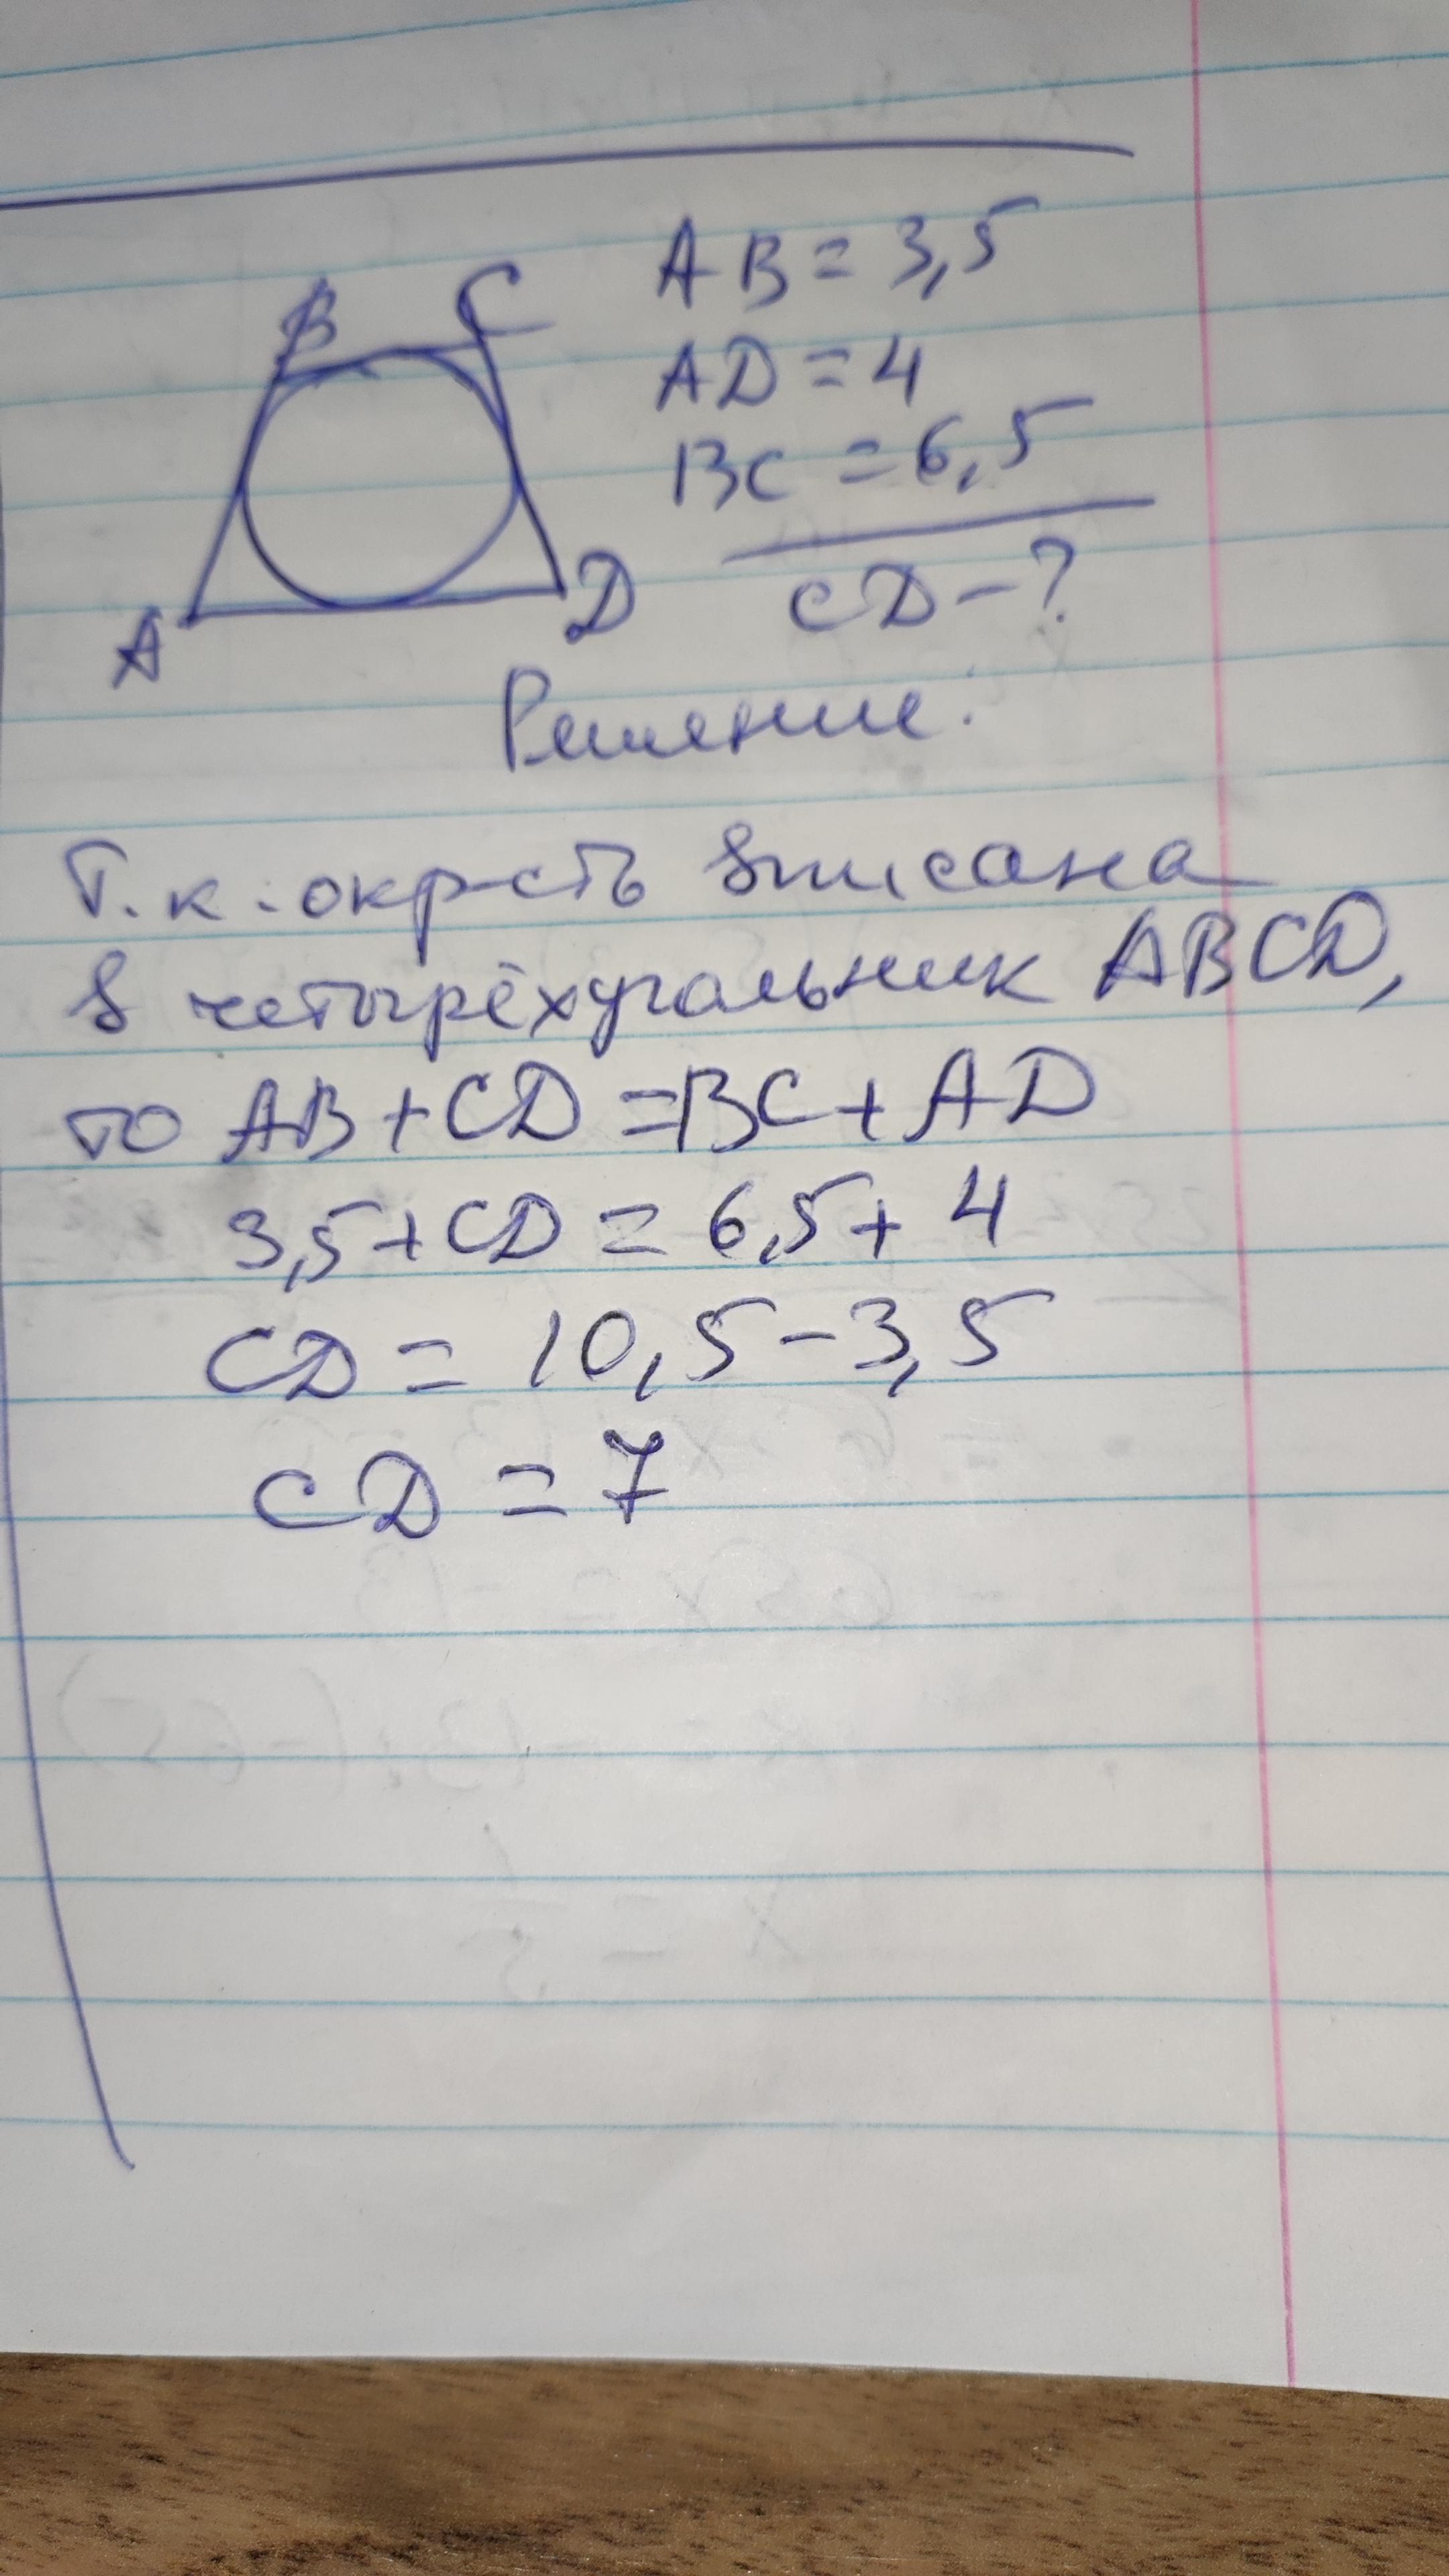 B C
A D
AB = 3,5
AD = 4
BC = 6,5
CD - ?
Решение:
Т.к. окр-сть вписана
в четырёхугольник ABCD,
то AB + CD = BC + AD
3,5 + CD = 6,5 + 4
CD = 10,5 - 3,5
CD = 7